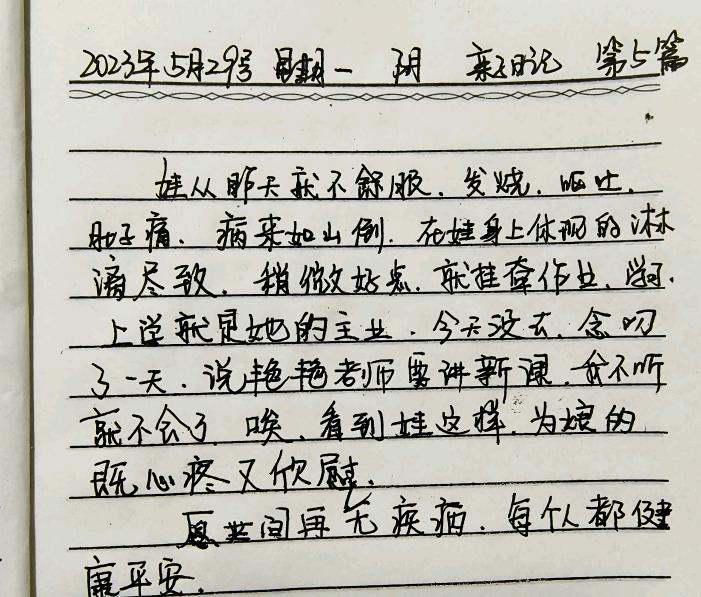 2023年5月29号 星期一 阴 亲子日记 第5篇
娃从昨天就不舒服、发烧、呕吐、
肚子痛、病来如山倒、在娃身上体现的淋林
漓尽致、稍微好点、就挂牵作业、学习、
上学就是她的主业、今天没去、念叨
了一天、说艳艳老师要讲新课、我不听
就不会了、唉、看到娃这样、为娘的
既心疼又欣慰、
愿世间再无疾病、每个人都健
康平安、